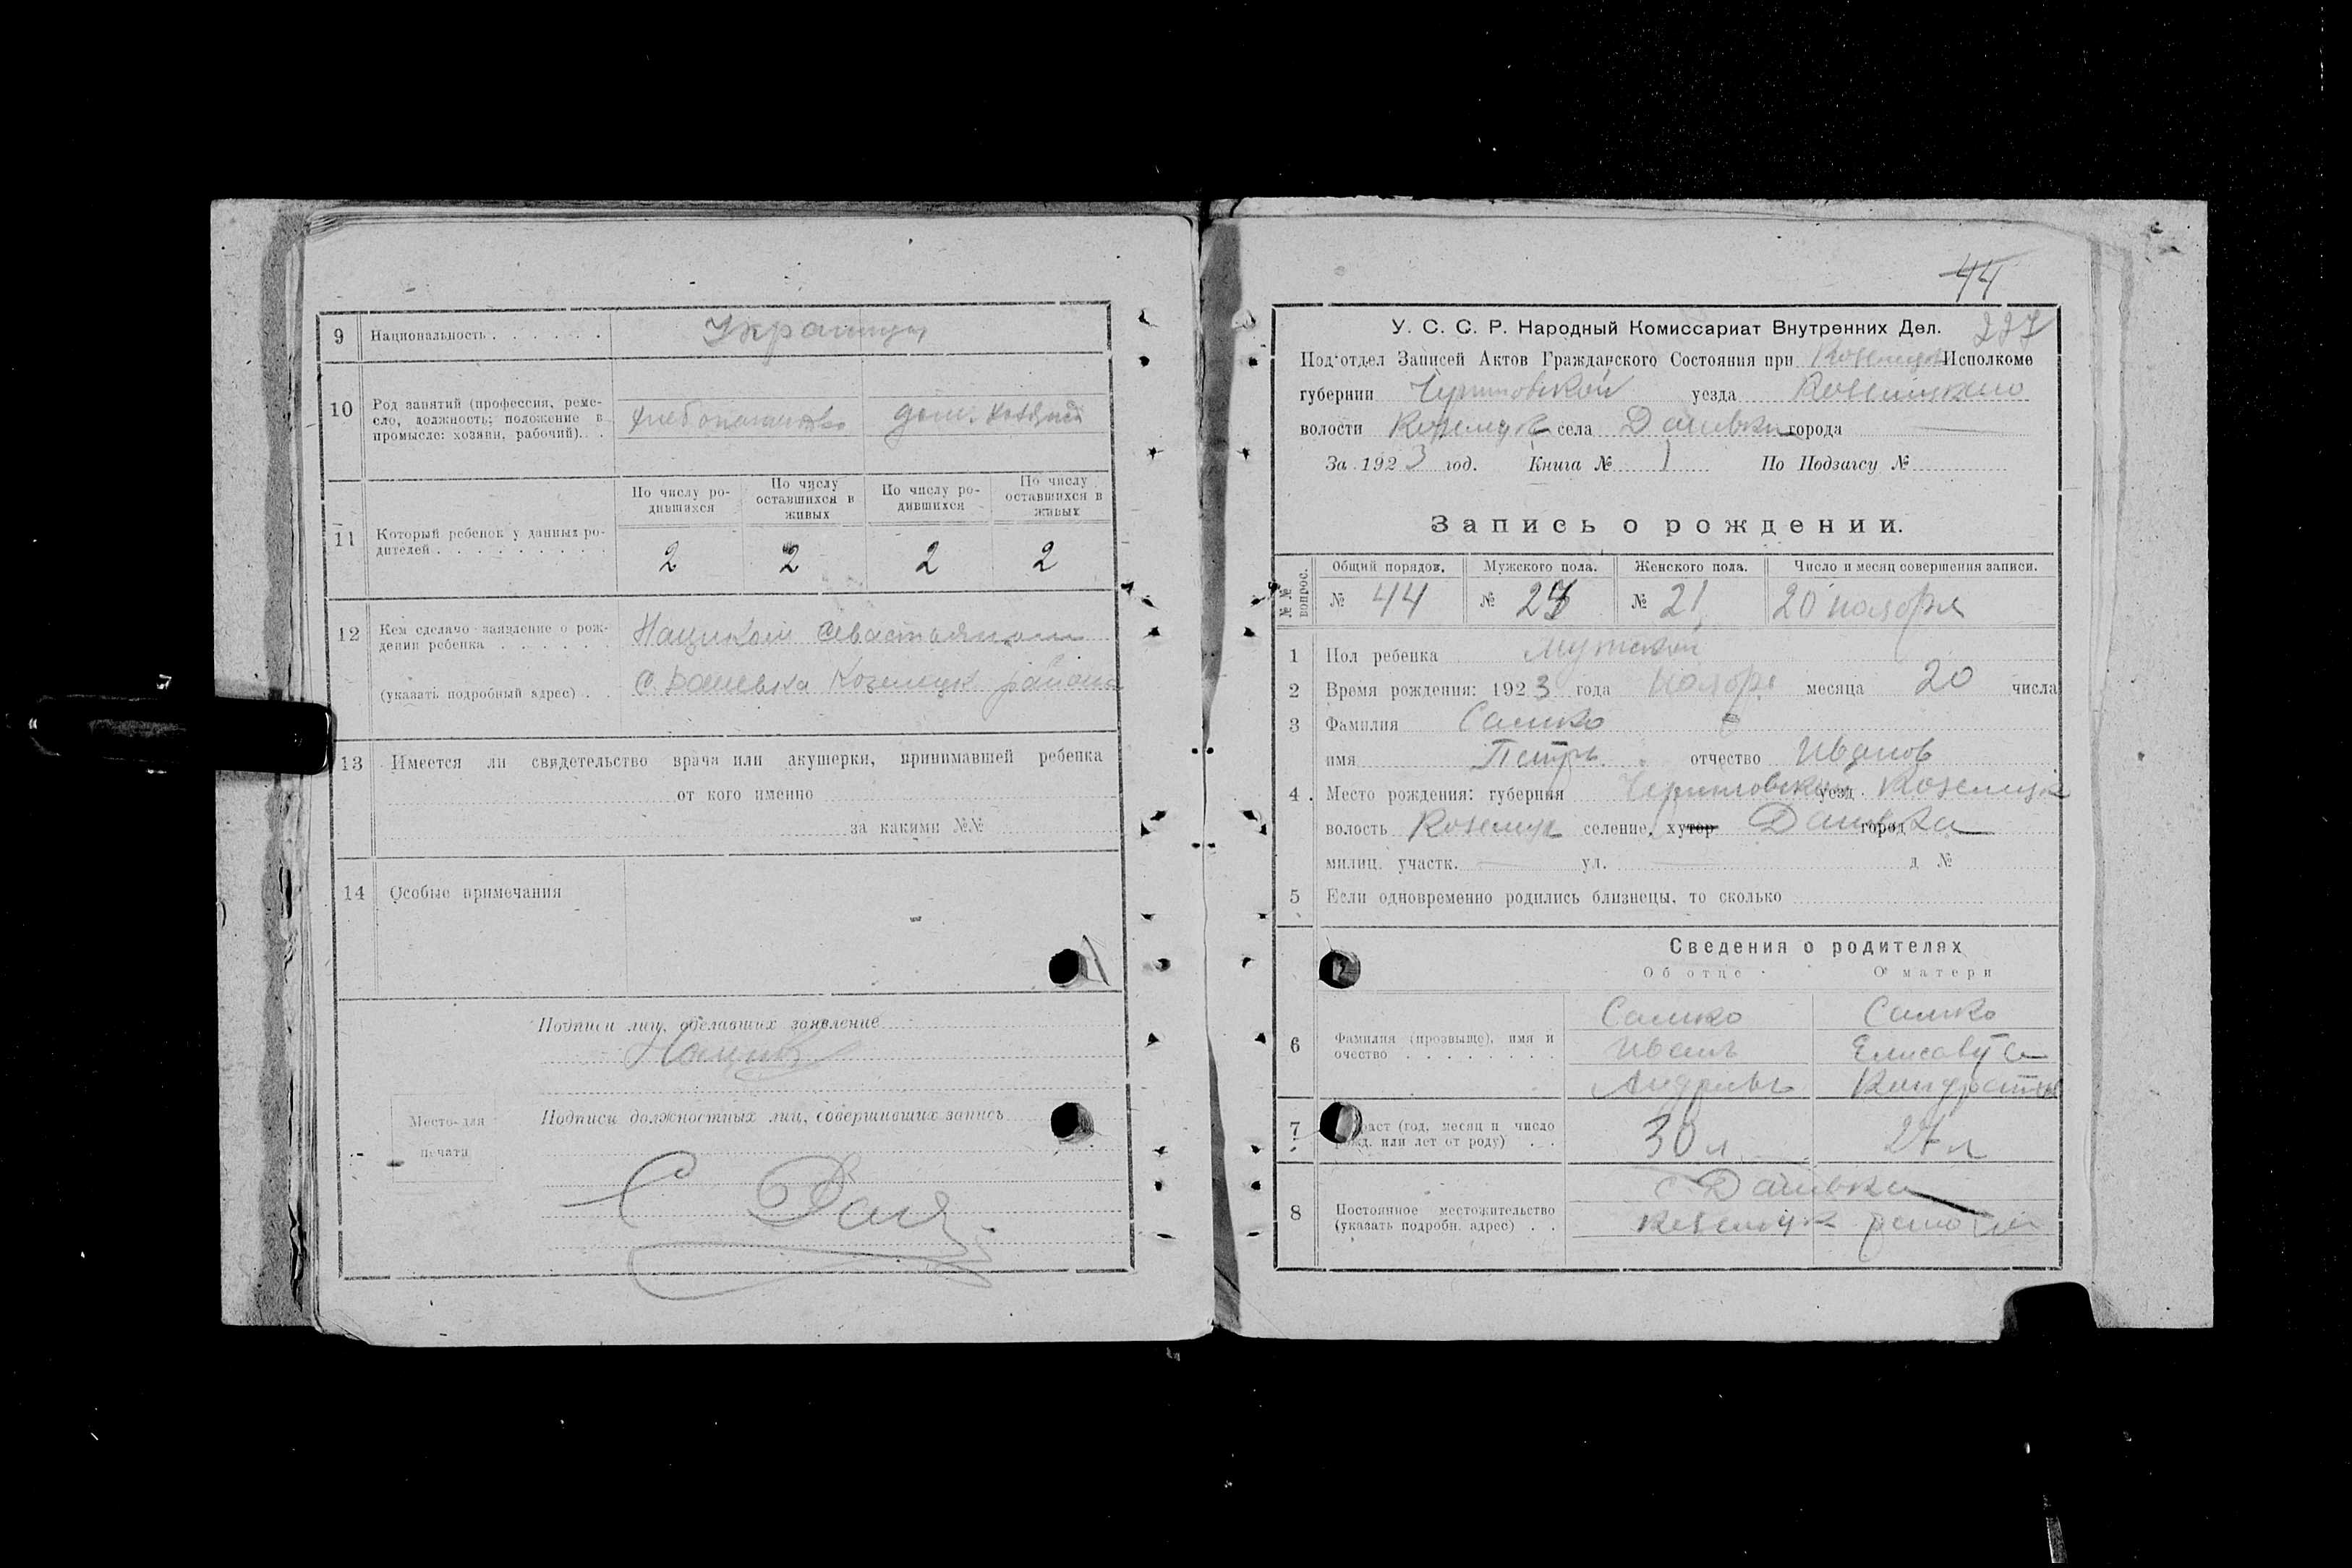 9 Национальность . . . . . . Украинцы
10 Род занятий (профессия, реме-
сло, должность; положение в
промысле: хозяин, рабочий). . хлебопашество дом. хозяйка
11 Который ребенок у данных ро-
дителей . . . . . . . . .
По числу ро-
дившихся
По числу
оставшихся в
живых
По числу ро-
дившихся
По числу
оставшихся в
живых
2 2 2 2
12 Кем сделано заявление о рож-
дении ребенка . . . . . .
(указать подробный адрес) . .
Нациком Севастьяном
с. Даневка Козелецк района
13 Имеется ли свидетельство врача или акушерки, принимавшей ребенка
от кого именно
за какими №№
14 Особые примечания
Подписи лиц, сделавших заявление
Место для
печати
Подписи должностных лиц, совершивших запись
44
У. С. С. Р. Народный Комиссариат Внутренних Дел. 227
Под'отдел Записей Актов Гражданского Состояния при Козелецк Исполкоме
губернии Черниговской уезда Козелецкаго
волости Козелецк села Даневки города
За 1923 год. Книга № 1 По Подзагсу №
Запись о рождении.
№ № вопрос.
Общий порядов. Мужского пола. Женского пола. Число и месяц совершения записи.
№ 44 № 23 № 21 20 ноября
1 Пол ребенка Мужской
2 Время рождения: 1923 года Ноября месяца 20 числа
3 Фамилия Сашко
имя Петръ отчество Иванов
4 . Место рождения: губерния Черниговская уезд. Козелецк
волость Козелецк селение, хутор Даневка город
милиц. участк. ул. д №
5 Если одновременно родились близнецы, то сколько
Сведения о родителях
Об отце О матери
6 Фамилия (прозвыще), имя и
очество . . . . . . . .
Сашко Сашко
Иван Елисавета
Андреевъ Кондратьев
7 Возраст (год, месяц и число
рожд. или лет от роду) . .
30 л 27 л
8 Постоянное местожительство
(указать подробн. адрес) . .
с. Даневка
Козелецк